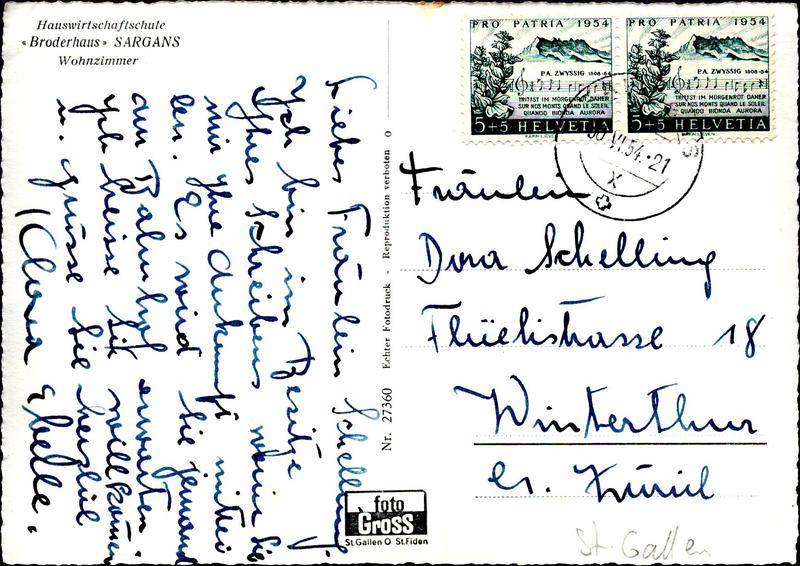 Hauswirtschaftschule
« Broderhaus » SARGANS
Wohnzimmer
Liebes Fräulein Schelling
Ich bin im Besitze
Ihres Schreibens wenn Sie
mir Ihre Ankunft mittei
len. Es wird Sie jemand
am Bahnhof erwarten.
Ich heisse Sie willkomen
u. grüsse Sie herzlich
Clara
Nr. 27360 Echter Fotodruck - Reproduktion verboten o
foto
Gross
St. Gallen O St. Fiden
PRO PATRIA 1954
P.A. ZWYSSIG 1808-54
TRITTST IM MORGENROT DAHER
SUR NOS MONTS QUAND LE SOLEIL
QUANDO BIONDA AURORA
5+5 HELVETIA
PRO PATRIA 1954
P.A. ZWYSSIG 1808-54
TRITTST IM MORGENROT DAHER
SUR NOS MONTS QUAND LE SOLEIL
QUANDO BIONDA AURORA
5+5 HELVETIA
VI.54.21
X
Fräulein
Dora Schelling
Flüelistrasse 18
Winterthur
Zürich
St. Gallen